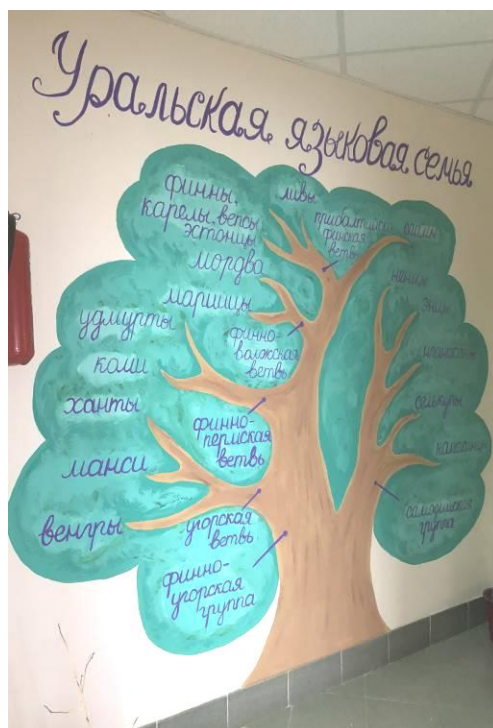 Уральская языковая семья
финны,
карелы, вепсы
эстонцы
ливы
прибалтийско
финская
ветвь
саамы
мордва
марийцы
финно-
волжская
ветвь
удмурты
коми
ханты
финно-
пермская
ветвь
манси
венгры
угорская
ветвь
финно-
угорская
группа
ненцы
энцы
нганасаны
селькупы
камасинцы
самодийская
группа